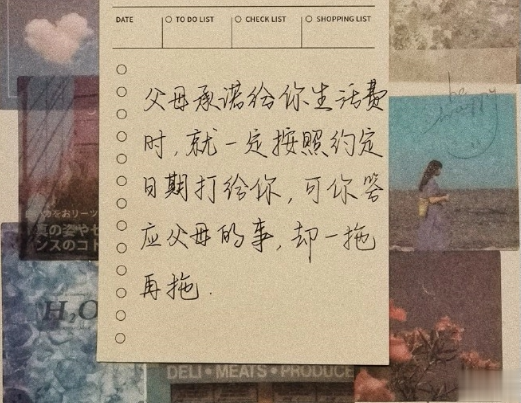 DATE
TO DO LIST
CHECK LIST
SHOPPING LIST
父母承诺给你生活费
时,就一定按照约定
日期打给你,可你答
应父母的事,却一拖
再拖.
be happy
をおリーツ
真の姿やセ
ンスのコト
H₂O
DELI • MEATS • PRODUCE